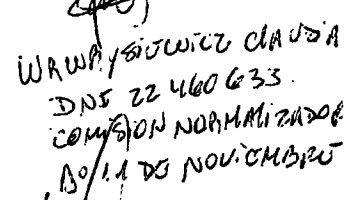 WAWRYSIEWICZ CLAUDIA
DNI 22 460 633.
COMISION NORMALIZADOR
Bº 11 DE NOVIEMBRE